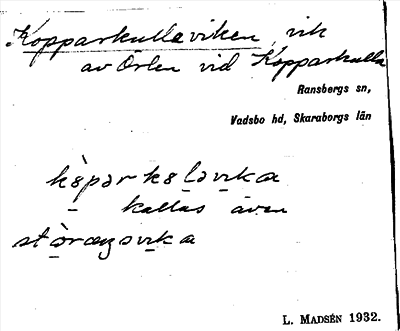 Kopparkullaviken, vik
av Örlen vid Kopparkulla
Ransbergs sn,
Vadsbo hd, Skaraborgs län
kallas även
L. MADSÉN 1932.